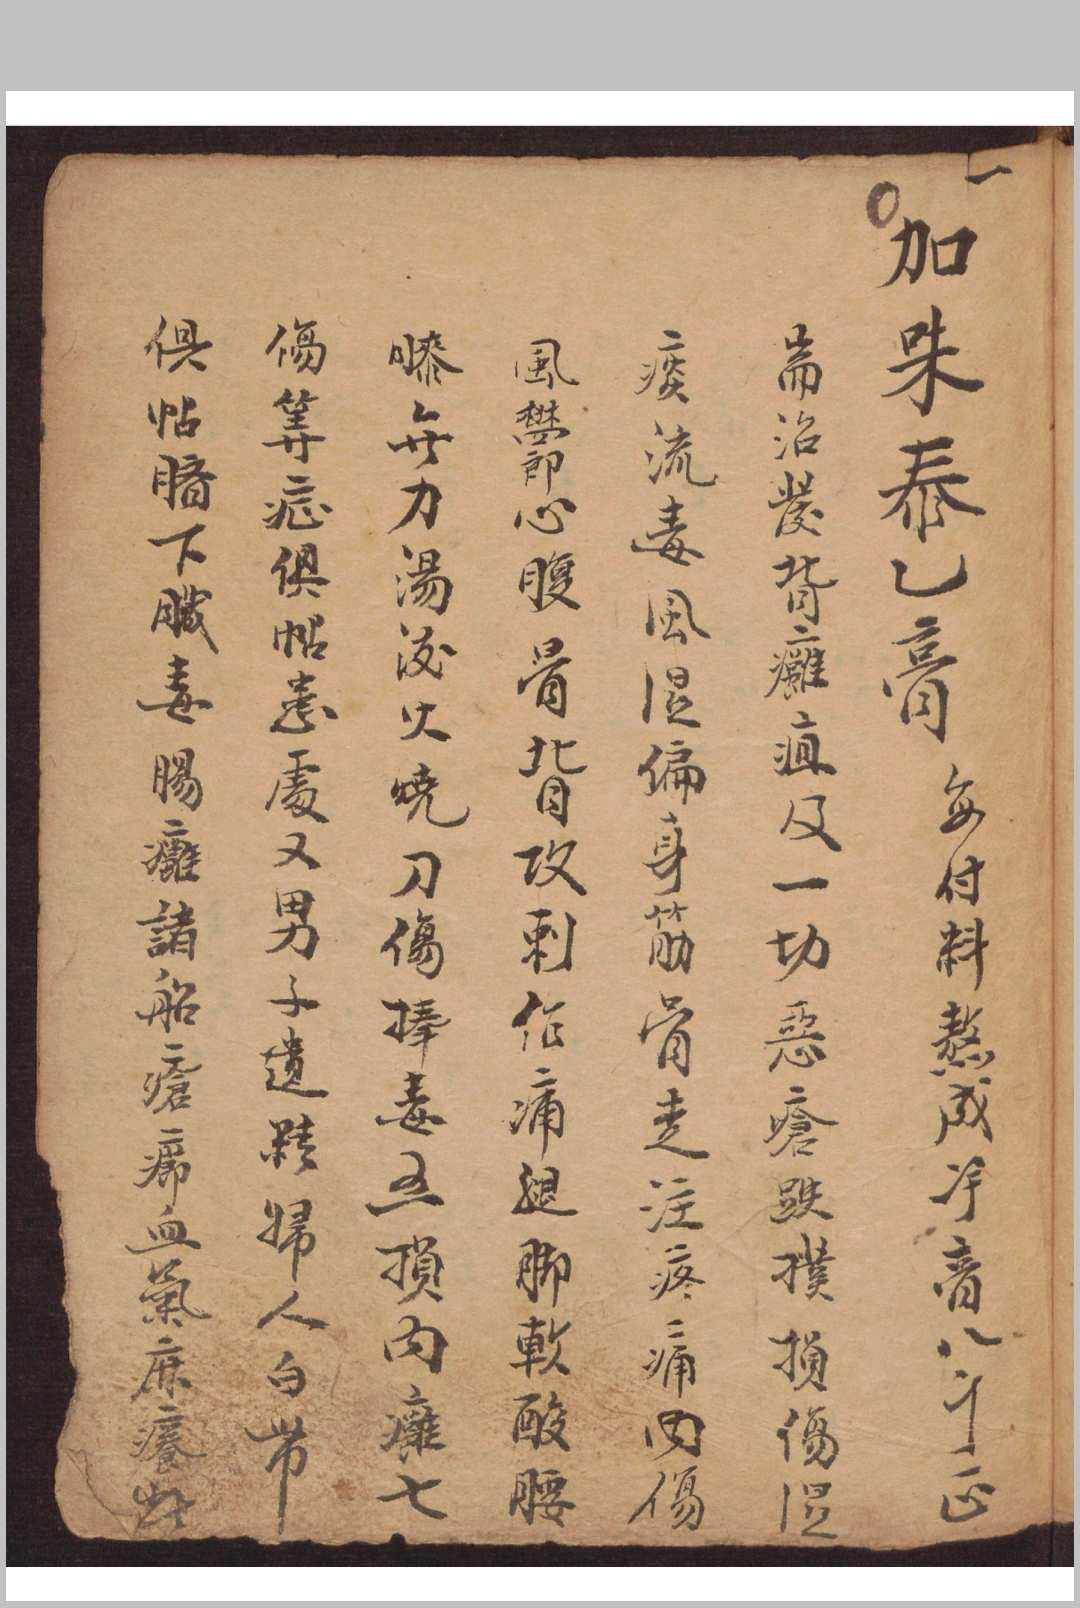 一
加味泰乙膏 每付料熬成净膏八斤正
耑治發背癰疽及一切惡瘡跌撲損傷湿
痰流毒風湿偏身筋骨走注疼痛内傷
風欝郎心腹胃背攻刺作痛腿脚軟酸腰
膝无力湯泼火燒刀傷捧毒五損内癰七
傷等症俱帖患處又男子遺精婦人白带
俱帖臍下臟毒腸癰諸般瘡癤血氣麻癢